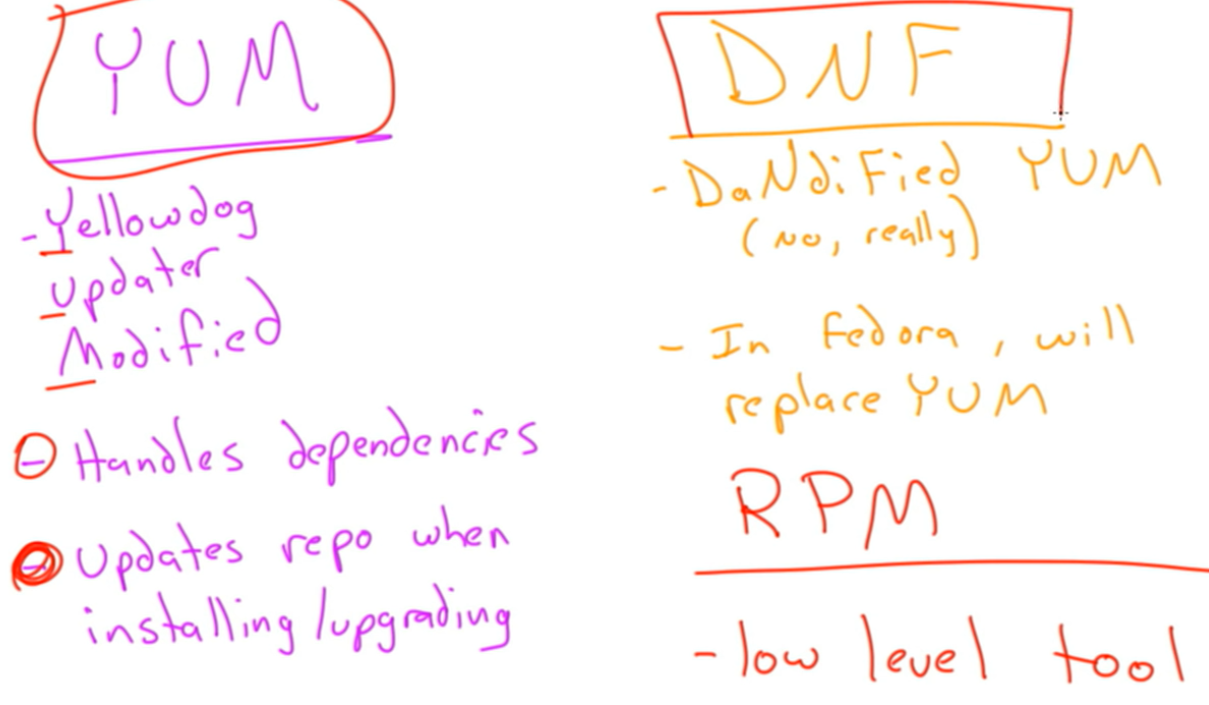 YUM
- Yellowdog
updater
Modified
- Handles dependencies
- Updates repo when
installing/upgrading
DNF
- DaNdiFied YUM
(no, really)
- In Fedora, will
replace YUM
RPM
- low level tool